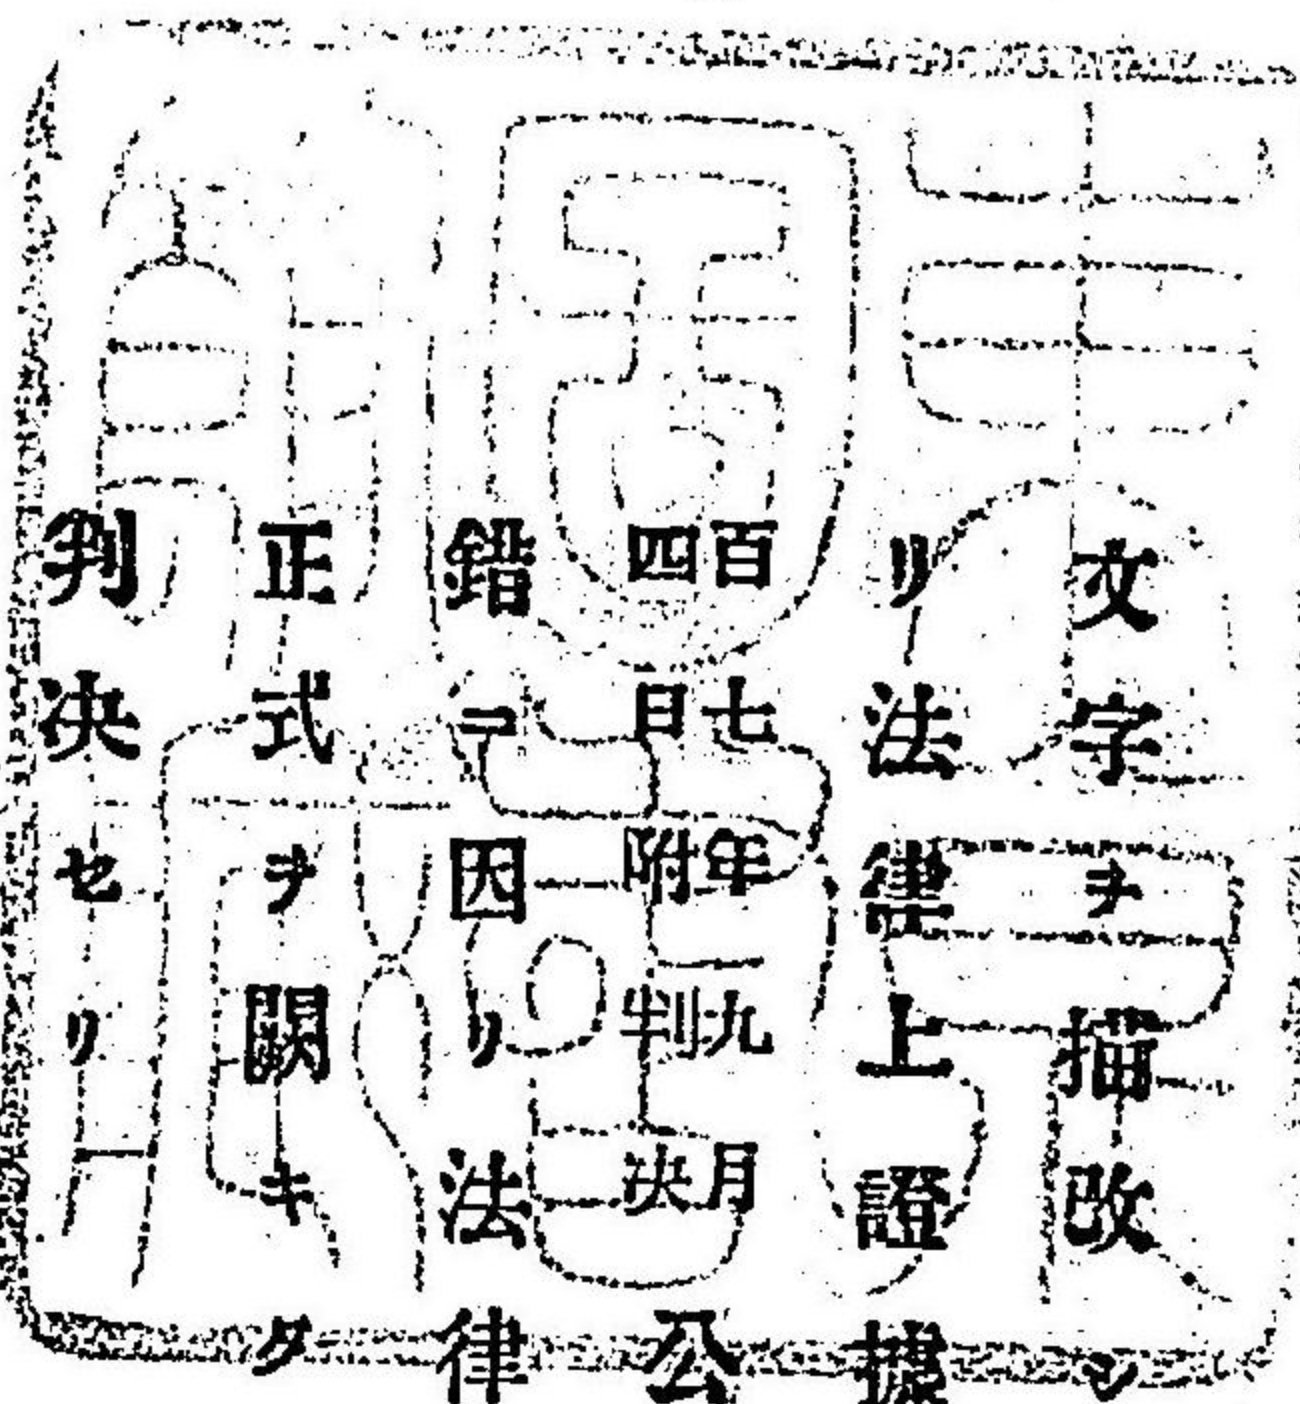 文字ヲ描改シ
リ法律上證據
百七年九月
四日附判决
公
錯ニ因リ法律
正式ヲ闕キタ
判决セリ